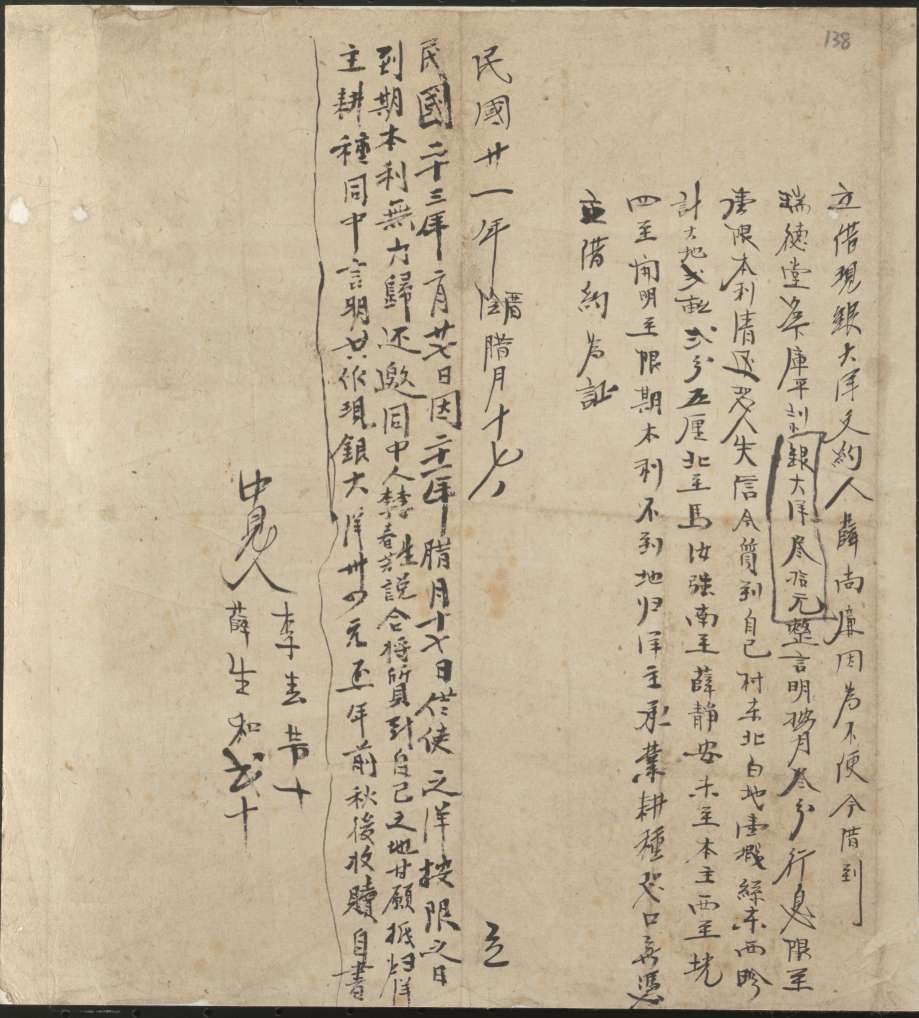 138
立借現銀大洋文約人薛尚廉因為不便今借到
瑞德堂名下庫平利銀大洋叁拾元整言明按月叁分行息限至
壹限本利清還恐人失信今質到自己村東北白地壹段絲東西畛
計大地弍畝弍分五厘北至馬汝強南至薛静安東至本主西至
四至開明至限期本利不到地归洋主承業耕種恐口無憑
立借約為証
民國廿一年陰曆腊月十七 立
民國二十三年二月廿七日因二十一年腊月十七日借使之洋按限之日
到期本利無力歸还邀同中人李春芳說合将所質到自己之地甘願抵归洋
主耕種同中言明共作現銀大洋卅四元五年前秋後收贖自書
中見人 李春芳十
薛生和弍十